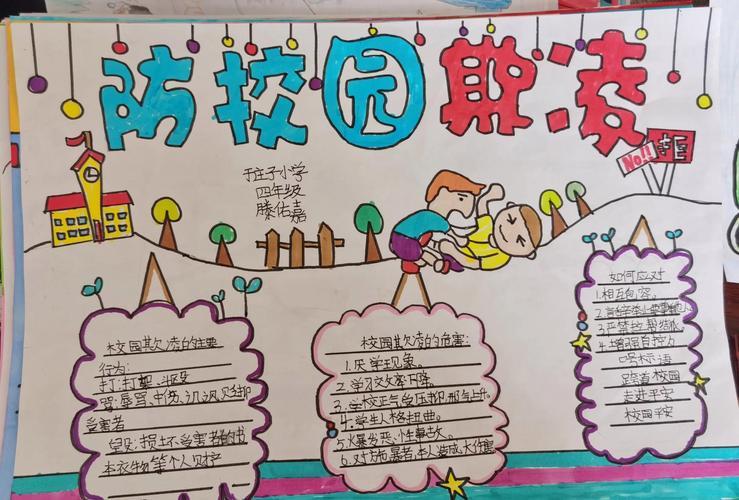 防校园欺凌
于庄子小学
四年级
滕佑嘉
No!!
校园欺凌的主要
行为:
打:打架、斗殴
骂:辱骂、中伤、讥讽、贬抑
受害者
毁:损坏受害者的书
本衣物等个人财产
校园欺凌的危害:
1.厌学现象。
2.学习效率下降。
3.学校正气受压抑,邪气上升。
4.学生人格扭曲。
5.火暴发恶、性事故。
6.对施暴者本人造成大伤害
如何应对
1.相互包容。
3.严禁拉帮结队
4.增强自控力
唱标语
踏着校园
走进平安
校园平安